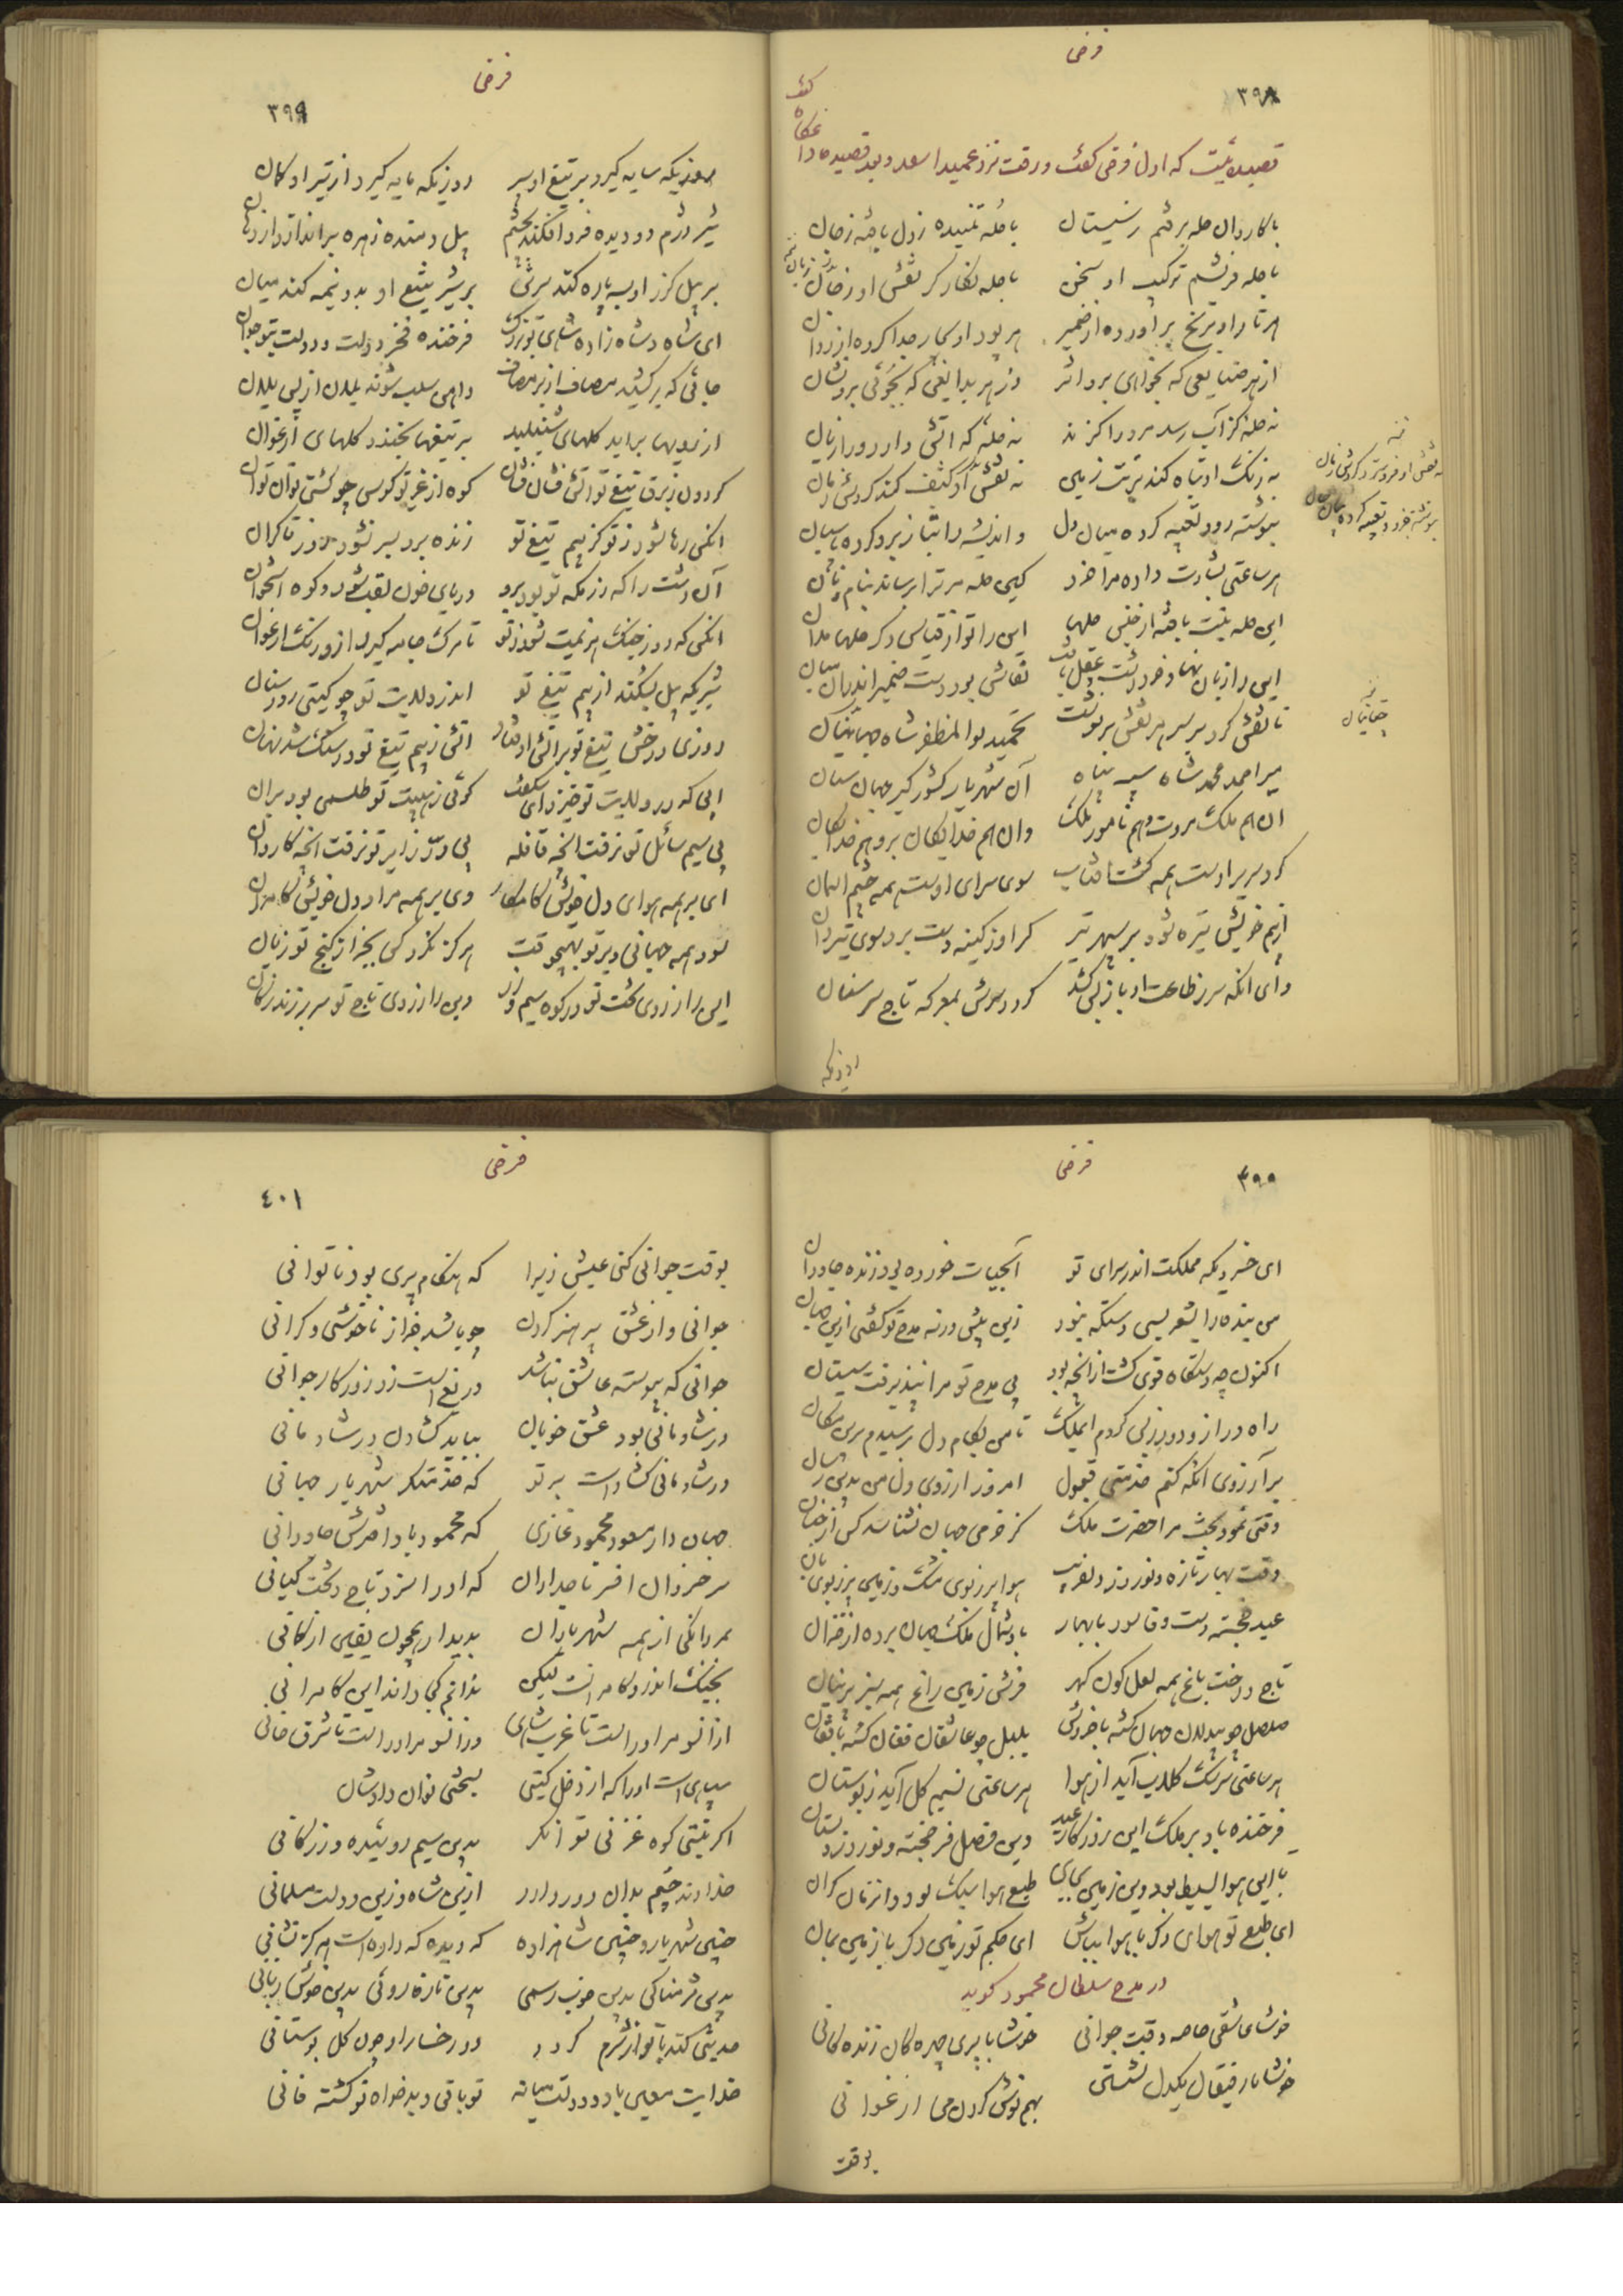 فرخی
۳۹۸
قصیده‌ئیست که اول فرخی گفت و رفت نزد عمید اسعد و بعد قصیده داغگاه گفت
با کاروان حله برفتم ز سیستان با حله تنیده ز دل بافته ز جان
با حله فریشم ترکیب او سخن با حله نگارگر نقش او زبان
هر تار او برنج برآورده از ضمیر هر پود او بجهد جدا کرده از روان
از هر صنایعی که بخواهی برو اثر وز هر بدایعی که بجوئی برو نشان
نه حله کز آب رسد مرورا گزند نه حله که آتش دارد ورا زیان
نه رنگ او تباه کند تربت زمین نه نقش او کثیف کند گردش زمان
بنوشته زود تعبیه کرده میان دل و اندیشه را بناز برو کرده پاسبان
هر ساعتی بشارت داده مرا خرد کین حله مر ترا برساند بنام و نان
این حله نیست بافته از جنس حلها این را تو از قیاس دگر حلها مدان
این را زبان نهاد و خرد رشت و عقل بافت نقاش بود دست ضمیر اندران بیان
تا نقش کرد بر سر هر نقش بر نوشت حمید بوالمظفر شاه چغانیان
میر احمد محمد شاه سپه پناه آن شهریار کشورگیر جهان ستان
آن هم ملک مروت و هم نامور ملک وان هم خدایگان برو هم خدایگان
گرد سریر اوست همه گشت آفتاب سوی سرای اوست همه چشم آسمان
از بیم خویش تیره شود بر سپهر تیر گر او ز کینه دست برد سوی تیردان
وای آنکه سر ز طاعت او باز پس کشد گردد سرش بمعرکه تاج سر سنان
نسخه
نه نقش او فرو سترد گردش زمان
بنوشته خرد و تعبیه کرده میان جان
نسخه
چغانیان
روزیکه
فرخی
۳۹۹
روزیکه سایه گیرد بر تیغ او سپر روزیکه مایه گیرد از تیر او کمان
شیر دژم دو دیده فرو افکند بچشم پیل دمنده زهره براندازد از دهان
بر پیل گرز او بسه پاره کند سرین بر شیر تیغ او بدو نیمه کند میان
ای شاه و شاهزاده شاهی بتو بزرگ فرخنده فخر دولت و دولت بتو جوان
جائی که برکشند مصاف از بر مصاف واهن سلب شوند یلان از پس یلان
از رویها براید گلهای شنبلید بر تیغها بخندد گلهای ارغوان
گردون ز برق تیغ تو آتش فشان فشان کوه از غریو کوس چو کشتی نوان نوان
آنکس رها شود ز تو کز بیم تیغ تو زنده برد بسر نشود روز تا گران
آن دشت را که رزمگه تو بود برو دریای خون لقب شود و کوه استخوان
آنکس که روز جنگ هزیمت شود ز تو تا مرگ جامه گیرد ازو رنگ ارغوان
شیریکه پیل بشکند از بیم تیغ تو اندر ولایت تو چو گیتی رود ستان
روزی درخش تیغ تو بر آتش اوفتاد آتش ز بیم تیغ تو در سنگ شد نهان
ابی که در ولایت تو خیزد ای شگفت گوئی ز هیبت تو طلسمی بود بران
بی سیم سائل تو نرفت ایچ قافله بی زر زایر تو نرفت ایچ کاروان
ای بر همه هوای دل خویش کامکار وی بر همه مراد دل خویش کامران
بود همه جهانی و بر تو بهیچ وقت هرگز نکرد کس بجز از گنج تو زیان
این را ز زوی تخت تو در کوه سیم و زر وین را ارزوی تاج تو سر بر زند ز کان
فرخی
۴۰۰
ای خسرویکه مملکت اندر سرای تو آبحیات خورده بود زنده جاودان
من بنده را بشعر بسی دستگه نبود زین پیش ورنه مدح تو گفتی ازین جهان
اکنون چو دستگاه قوی گشت از آنچه بود بی مدح تو مرا نپذیرفت سیستان
راه دراز و دور ز پس کردم ایملک تا من بکام دل برسیدم برین مکان
بر آرزوی آنکه کنم خدمتی قبول امروز آرزوی دل من بدین رسان
وقتی نمود بخت مرا حضرت ملک کز خرمی جهان نشناسد کس از جنان
وقت بهار تازه و نوروز دلفریب هوا پر ز بوی مشک و زمین پر ز بوی بان
عید خجسته دست وفا سود با بهار باد شمال ملک جهان برده از خزان
تاج درخت باغ همه لعل گون گهر فرش زمین راغ همه سبز پرنیان
صلصل چو بیدلان جهان گشته با خروش بلبل چو عاشقان فغان گشته با فغان
هر ساعتی سرشک گلاب آید از هوا هر ساعتی نسیم گل آید ز بوستان
فرخنده باد بر ملک این روزگار عید وین فصل فر خجسته و نوروز دلستان
تا این هوا بسیط بود وین زمین بجای طبع هوا سبک بود و از زمان گران
ای طبع تو هوای دگر با هوا بباش ای حکم تو زمین دگر با زمین بمان
در مدح سلطان محمود گوید
خوشا عاشقی خاصه وقت جوانی خوشا با پری چهرگان زندگانی
خوشا با رفیقان یکدل نشستن بهم نوش کردن می ارغوانی
بوقت
فرخی
۴۰۱
بوقت جوانی کنی عیش زیرا که هنگام پیری بود ناتوانی
جوانی و از عشق پرهیز کردن چو باشد بجز از ناخوشی و گرانی
جوانی که پیوسته عاشق نباشد دریغ است زو روزگار جوانی
در شادمانی بود عشق خوبان بباید گشادن در شادمانی
در شادمانی گشادست بر تو که خدمتگر شهریار جهانی
جهان دار مسعود محمود غازی که محمود باد اخترش جاودانی
سر خسروان افسر تاجداران که او را سزد تاج و تخت کیانی
مردانگی از همه شهریاران پدیدار همچون یقین از گمانی
بجنگ اندرون کامرانست لیکن ندانم کجا داند این کامرانی
از آنسو مر او راست تا غرب شاهی وزانسو مر او راست تا شرق خانی
سپاهیست او را که از دخل گیتی بسختی توان دادشان
اگر نیستی کوه غزنی توانگر بدین سیم روئیده و زر کانی
خداوند چشم بدان دور دارد ازین شاه و زین دولت مسلمانی
چنین شهریار و چنین شاهزاده که دیده که داده است هرگز نشانی
بدین شرمناکی بدین خوب رسمی بدین تازه روئی بدین خوش زبانی
حدیثی کند با تو از شرم گردد دو رخسار او چون گل بوستانی
خدایت معین باد و دولت میانه تو باقی و بدخواه تو گشته فانی